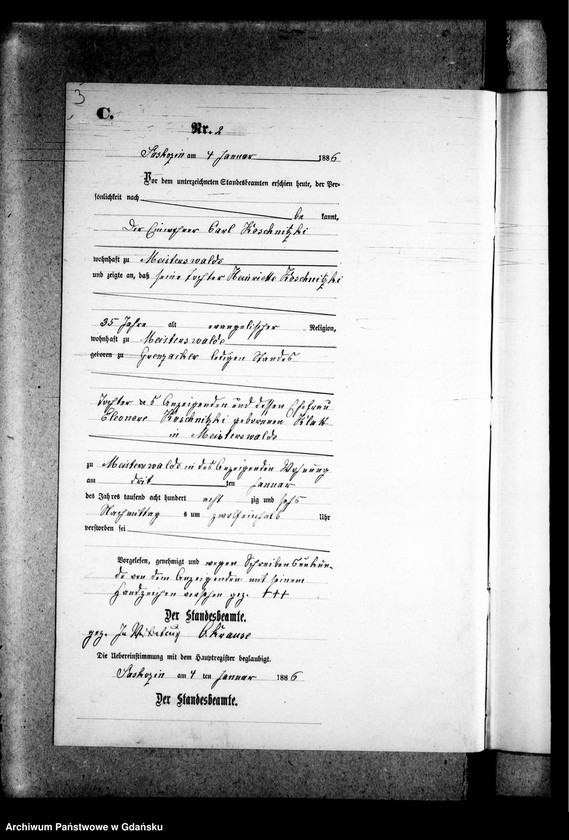 3
C.
Nr. 2
Saskozin am 4 Januar 1886
Vor dem unterzeichneten Standesbeamten erschien heute, der Per-
sönlichkeit nach
be kannt,
Der Einwohner Carl Koschnitzki
wohnhaft zu Meisterswalde
und zeigte an, daß seine Tochter Henriette Koschnitzki
35 Jahre alt evangelischer Religion,
wohnhaft zu Meisterswalde
geboren zu Grenzacker ledigen Standes
Tochter des Anzeigenden und dessen Ehefrau
Eleonore Koschnitzki geborenen Klatt
in Meisterswalde
zu Meisterswalde in des Anzeigenden Wohnung
am drit ten Januar
des Jahres tausend acht hundert acht zig und sechs
Nachmittag s um zwölfeinhalb Uhr
verstorben sei
Vorgelesen, genehmigt und wegen Schreibensunkun-
de von dem Anzeigenden mit seinem
Handzeichen versehen gez. +++
Der Standesbeamte.
gez. In Vertretung Krause
Die Uebereinstimmung mit dem Hauptregister beglaubigt.
Saskozin am 4 ten Januar 1886
Der Standesbeamte.
Archiwum Państwowe w Gdańsku